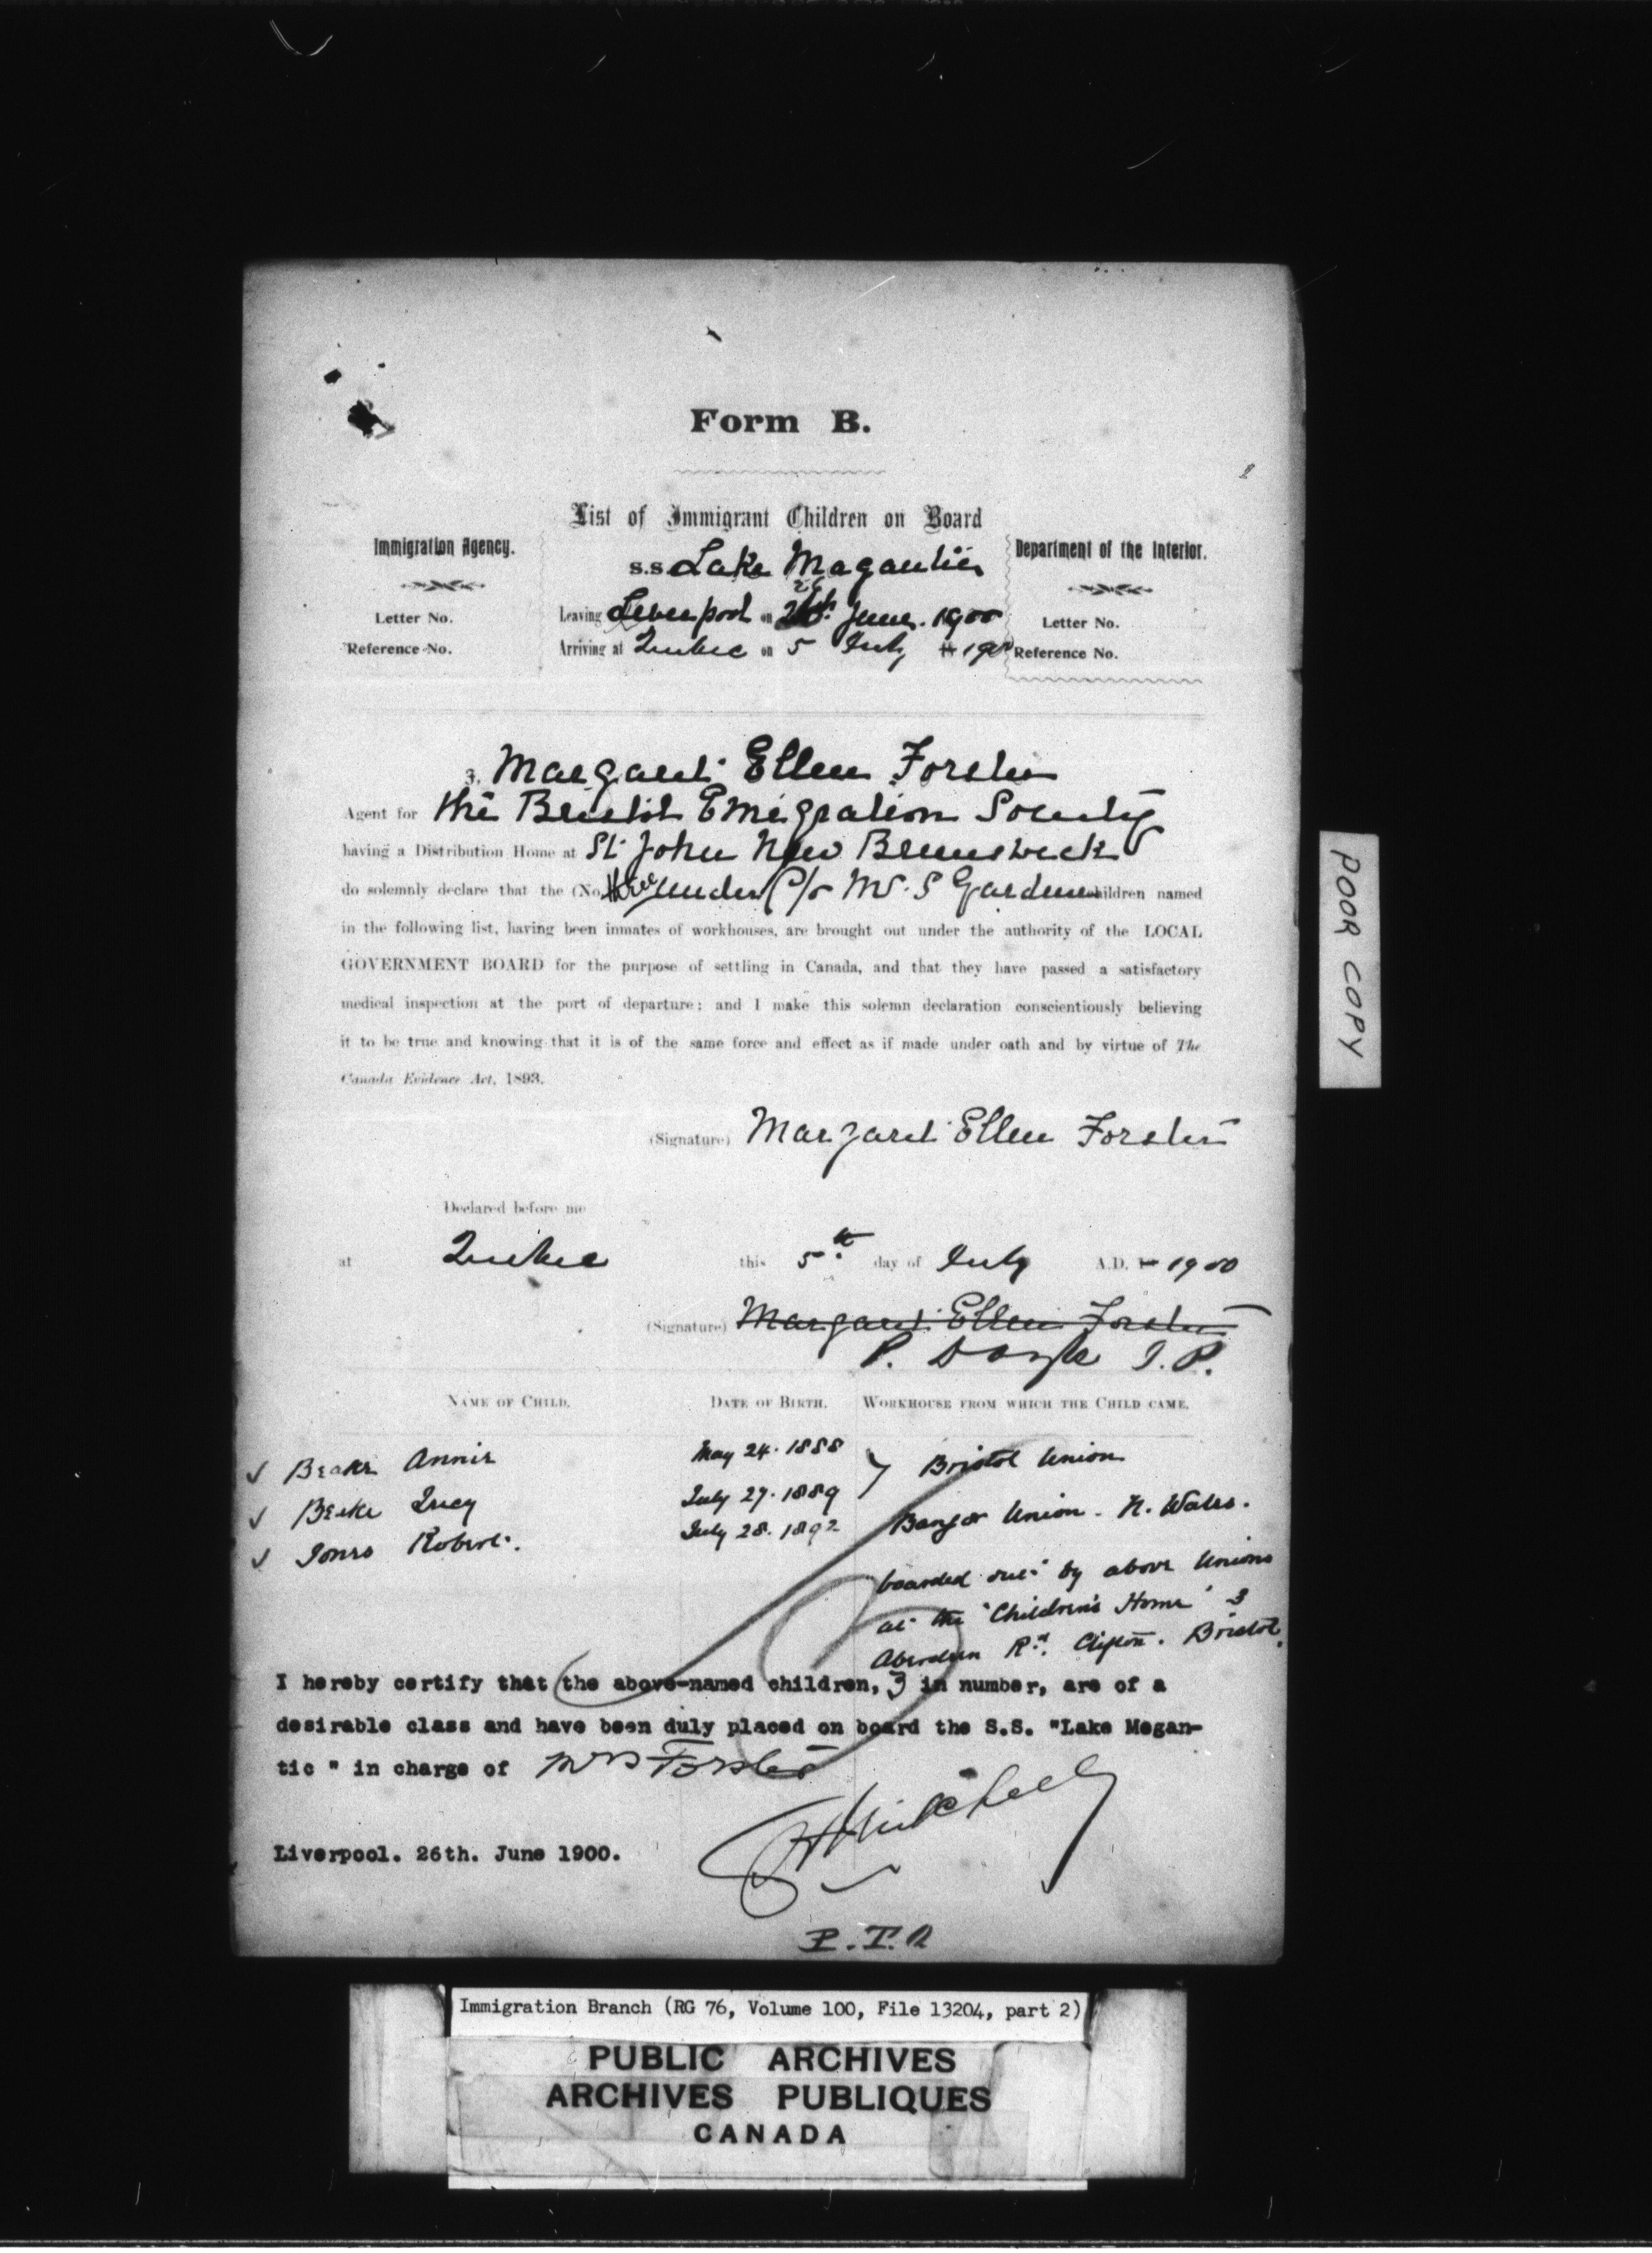 Form B.
List of Immigrant Children on Board
Immigration Agency.
Department of the Interior.
S.S Lake Magantic
Letter No.
Leaving Liverpool on 26th June. 1900
Letter No.
Reference No.
Arriving at Quebec on 5 July 1900
Reference No.
I, Margaret Ellen Forster
Agent for the Bristol Emigration Society
having a Distribution Home at St John New Brunswick
do solemnly declare that the (No. three under c/o Mr S Gardener children named
in the following list, having been inmates of workhouses, are brought out under the authority of the LOCAL
GOVERNMENT BOARD for the purpose of settling in Canada, and that they have passed a satisfactory
medical inspection at the port of departure; and I make this solemn declaration conscientiously believing
it to be true and knowing that it is of the same force and effect as if made under oath and by virtue of The
Canada Evidence Act, 1893.
(Signature) Margaret Ellen Forster
Declared before me
at Quebec this 5th day of July A.D. 1900
(Signature) Margaret Ellen Forster
P. Doyle J.P.
NAME OF CHILD. DATE OF BIRTH. WORKHOUSE FROM WHICH THE CHILD CAME.
Beake Annie May 24. 1888 Bristol Union
Beake Lucy July 27. 1889
Jones Robert. July 28. 1892 Bangor Union - N. Wales.
boarded out by above Unions
at the 'Children's Home' 3
Aberdeen Rd. Clifton. Bristol.
I hereby certify that the above-named children, 3 in number, are of a
desirable class and have been duly placed on board the S.S. "Lake Megan-
tic " in charge of Mrs Forster
Mitchell
Liverpool. 26th. June 1900.
P.T.O
POOR COPY
Immigration Branch (RG 76, Volume 100, File 13204, part 2)
PUBLIC ARCHIVES
ARCHIVES PUBLIQUES
CANADA